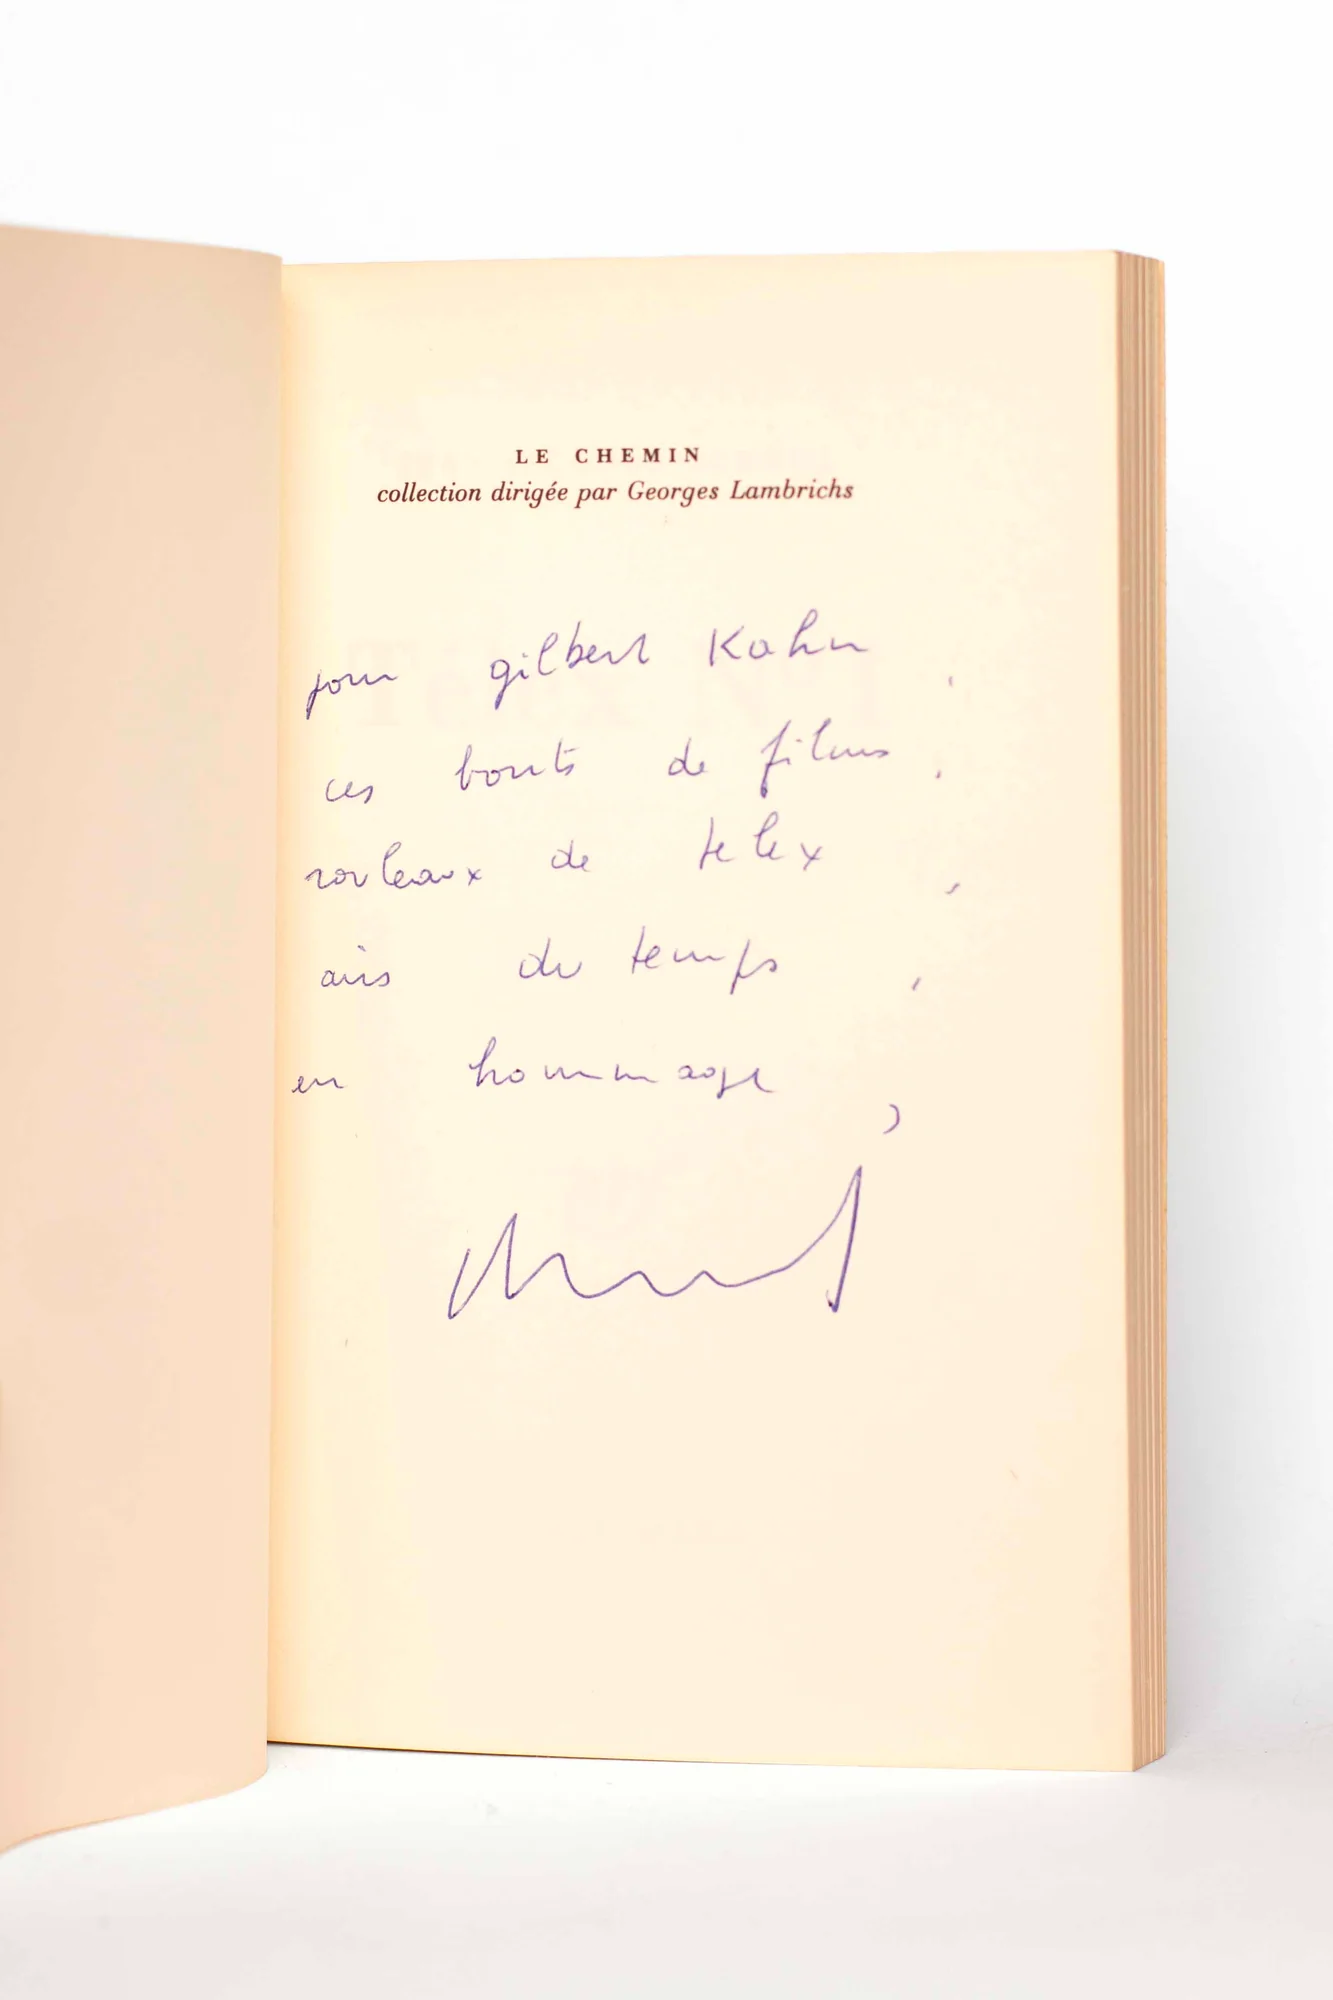 LE CHEMIN
collection dirigée par Georges Lambrichs
pour gilbert Kahn,
ces bouts de films,
rouleaux de telex,
airs du temps,
en hommage,